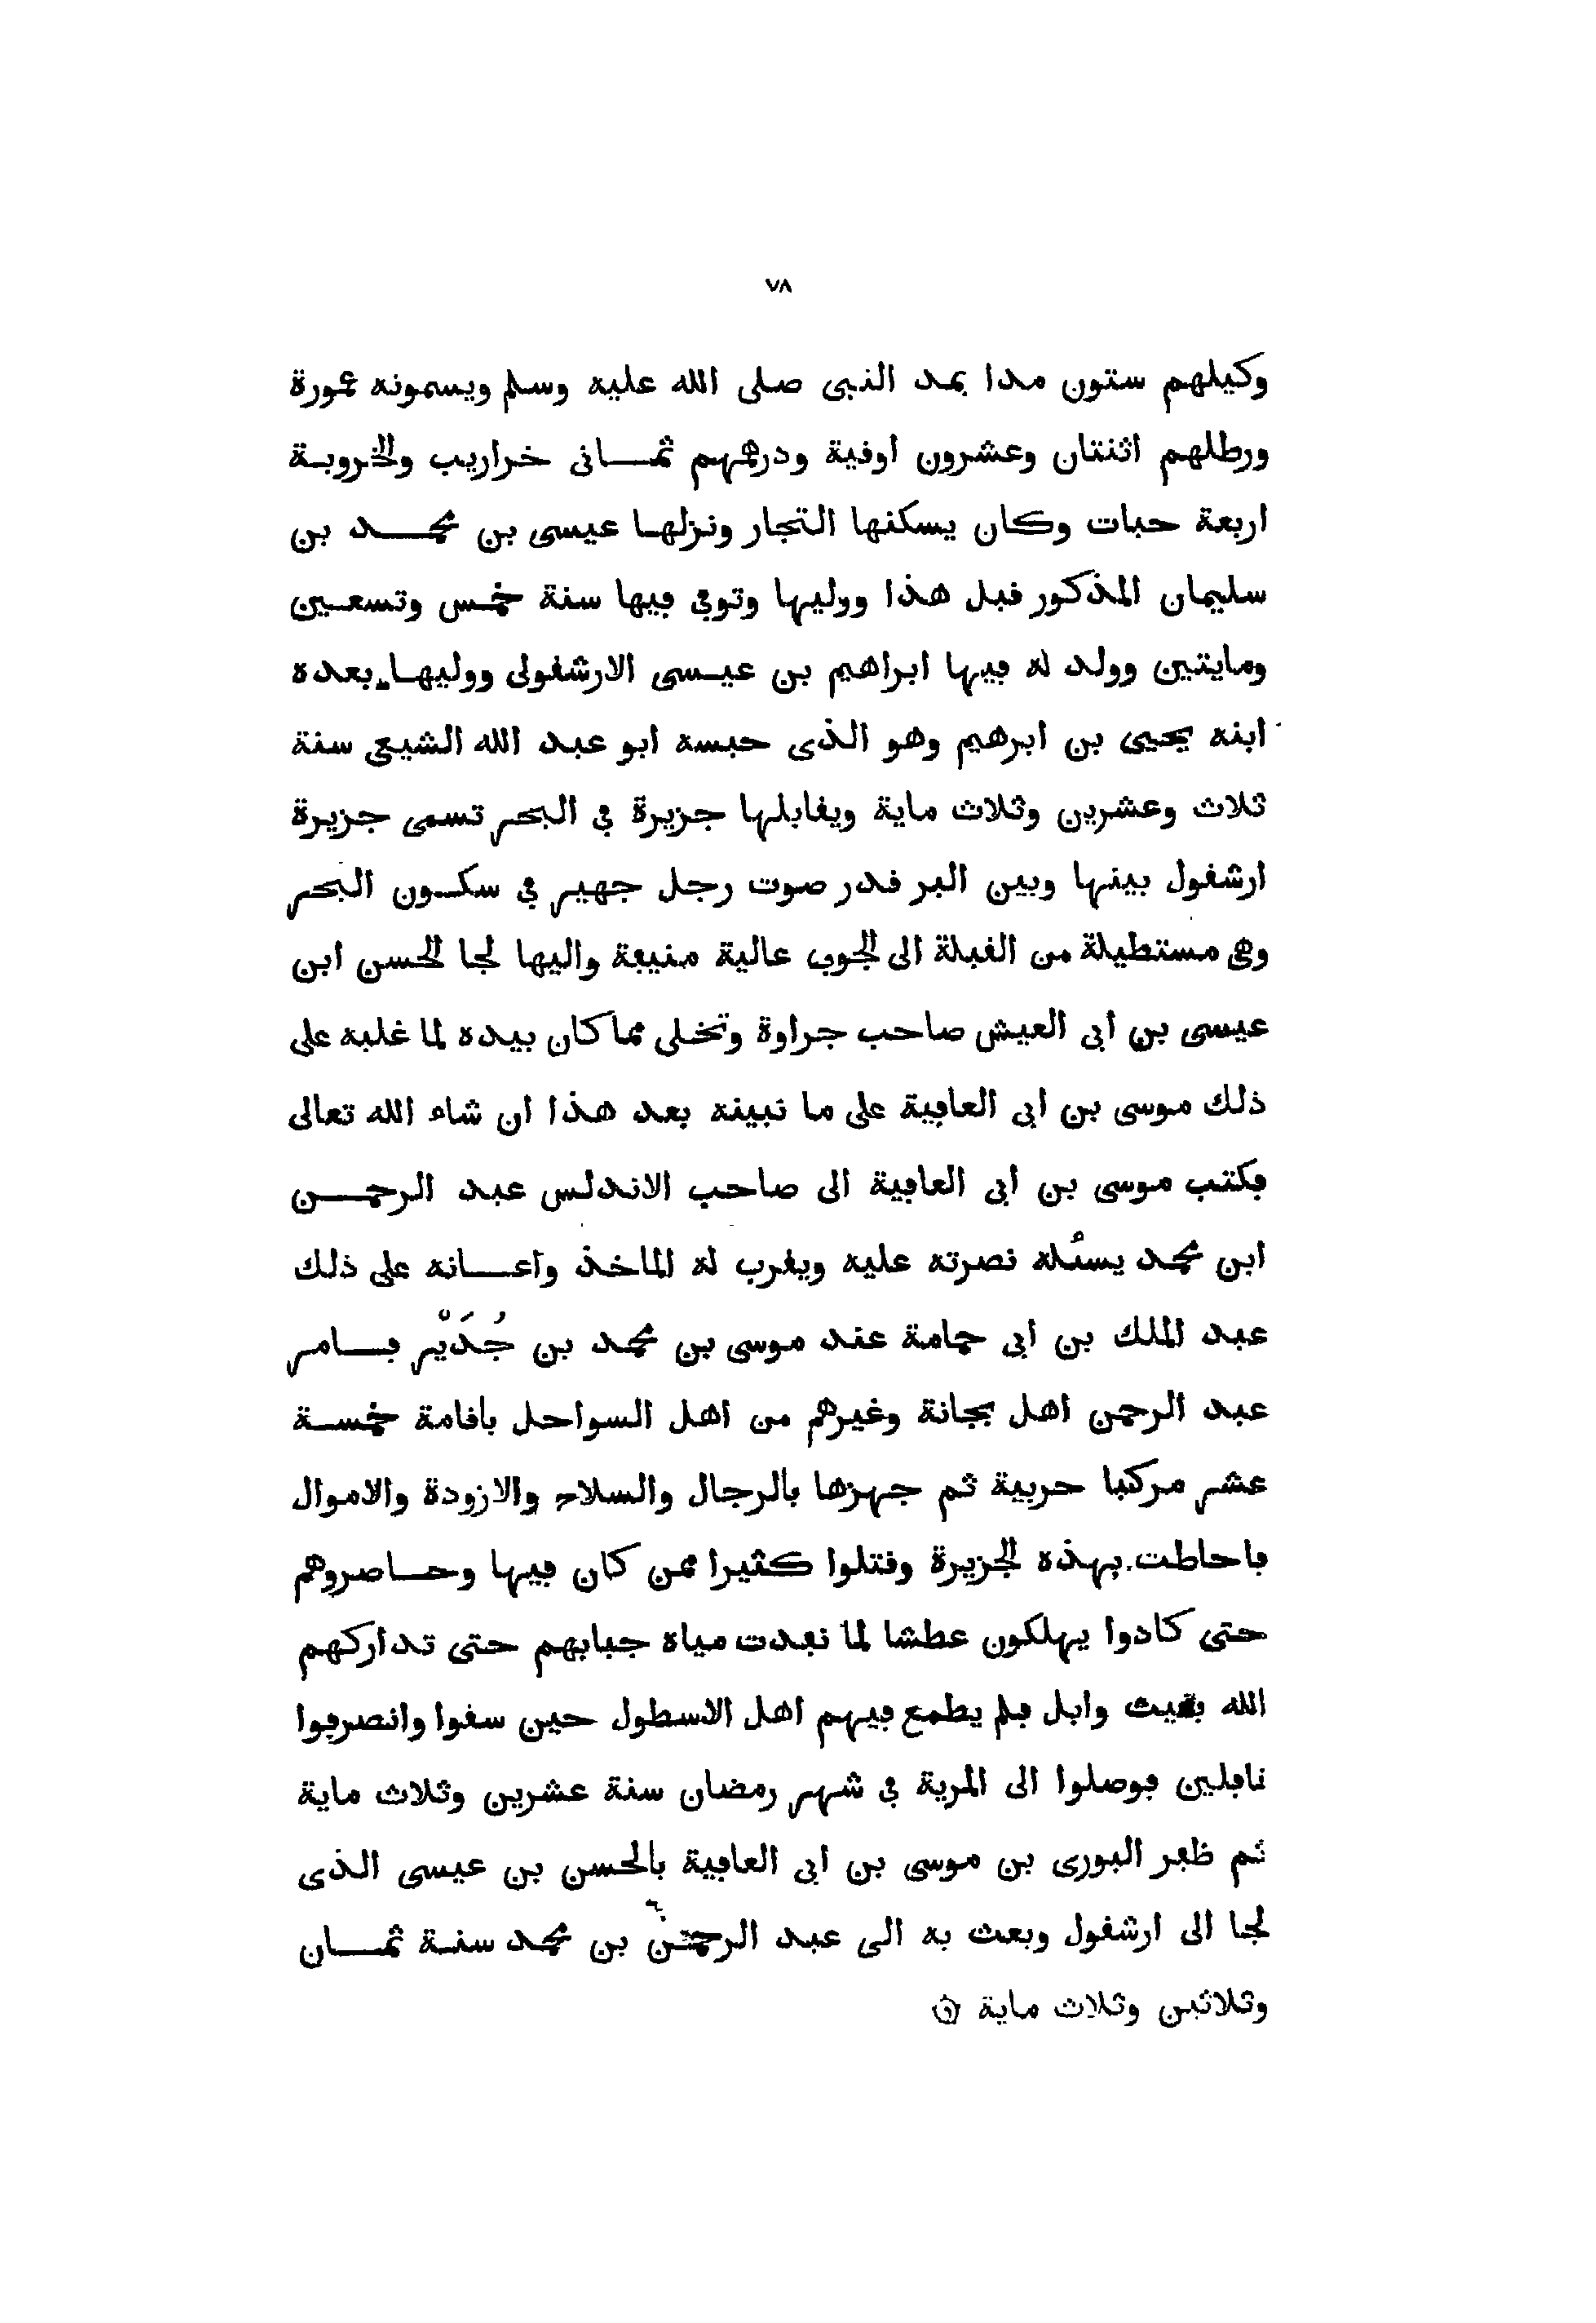 ٧٨
وكيلهم ستون مدا بمد النبى صلى الله عليه وسلم ويسمونه عمورة
ورطلهم اثنتان وعشرون اوقية ودرهمهم ثمــانى خراريب والخروبة
اربعة حبات وكان يسكنها التجار ونزلها عيسى بن محمـد بن
سليمان المذكور قبل هذا ووليها وتوفى فيها سنة خمس وتسعين
ومايتين وولد له فيها ابراهيم بن عيسى الارشقولى ووليها بعده
ابنه يحيى بن ابرهيم وهو الذى حبسه ابو عبد الله الشيعى سنة
ثلاث وعشرين وثلاث ماية ويقابلها جزيرة فى البحر تسمى جزيرة
ارشقول بينها وبين البر قدر صوت رجل جهير فى سكـون البحر
وهى مستطيلة من القبلة الى الجوف عالية منيعة واليها لجا الحسن ابن
عيسى بن ابى العيش صاحب جراوة وتخلى مما كان بيده لما غلبه على
ذلك موسى بن ابى العافية على ما نبينه بعد هذا ان شاء الله تعالى
فكتب موسى بن ابى العافية الى صاحب الاندلس عبد الرحمـن
ابن محمد يسئله نصرته عليه ويقرب له الماخذ واعــانه على ذلك
عبد الملك بن ابى حمامة عند موسى بن محمد بن جُدَيْر فــامر
عبد الرحمن اهل بجانة وغيرهم من اهل السواحل باقامة خمسـة
عشر مركبا حربية ثم جهزها بالرجال والسلاح والازودة والاموال
فاحاطت بهذه الجزيرة وقتلوا كثيرا ممن كان فيها وحـاصروهم
حتى كادوا يهلكون عطشا لما نفدت مياه جبابهم حتى تداركهم
الله بغيث وابل فلم يطمع فيهم اهل الاسطول حين سقوا وانصرفوا
نافلين فوصلوا الى المرية فى شهر رمضان سنة عشرين وثلاث ماية
ثم ظفر البورى بن موسى بن ابى العافية بالحسن بن عيسى الذى
لجا الى ارشقول وبعث به الى عبد الرحمن بن محمد سنة ثمــان
وثلاثين وثلاث ماية ۞